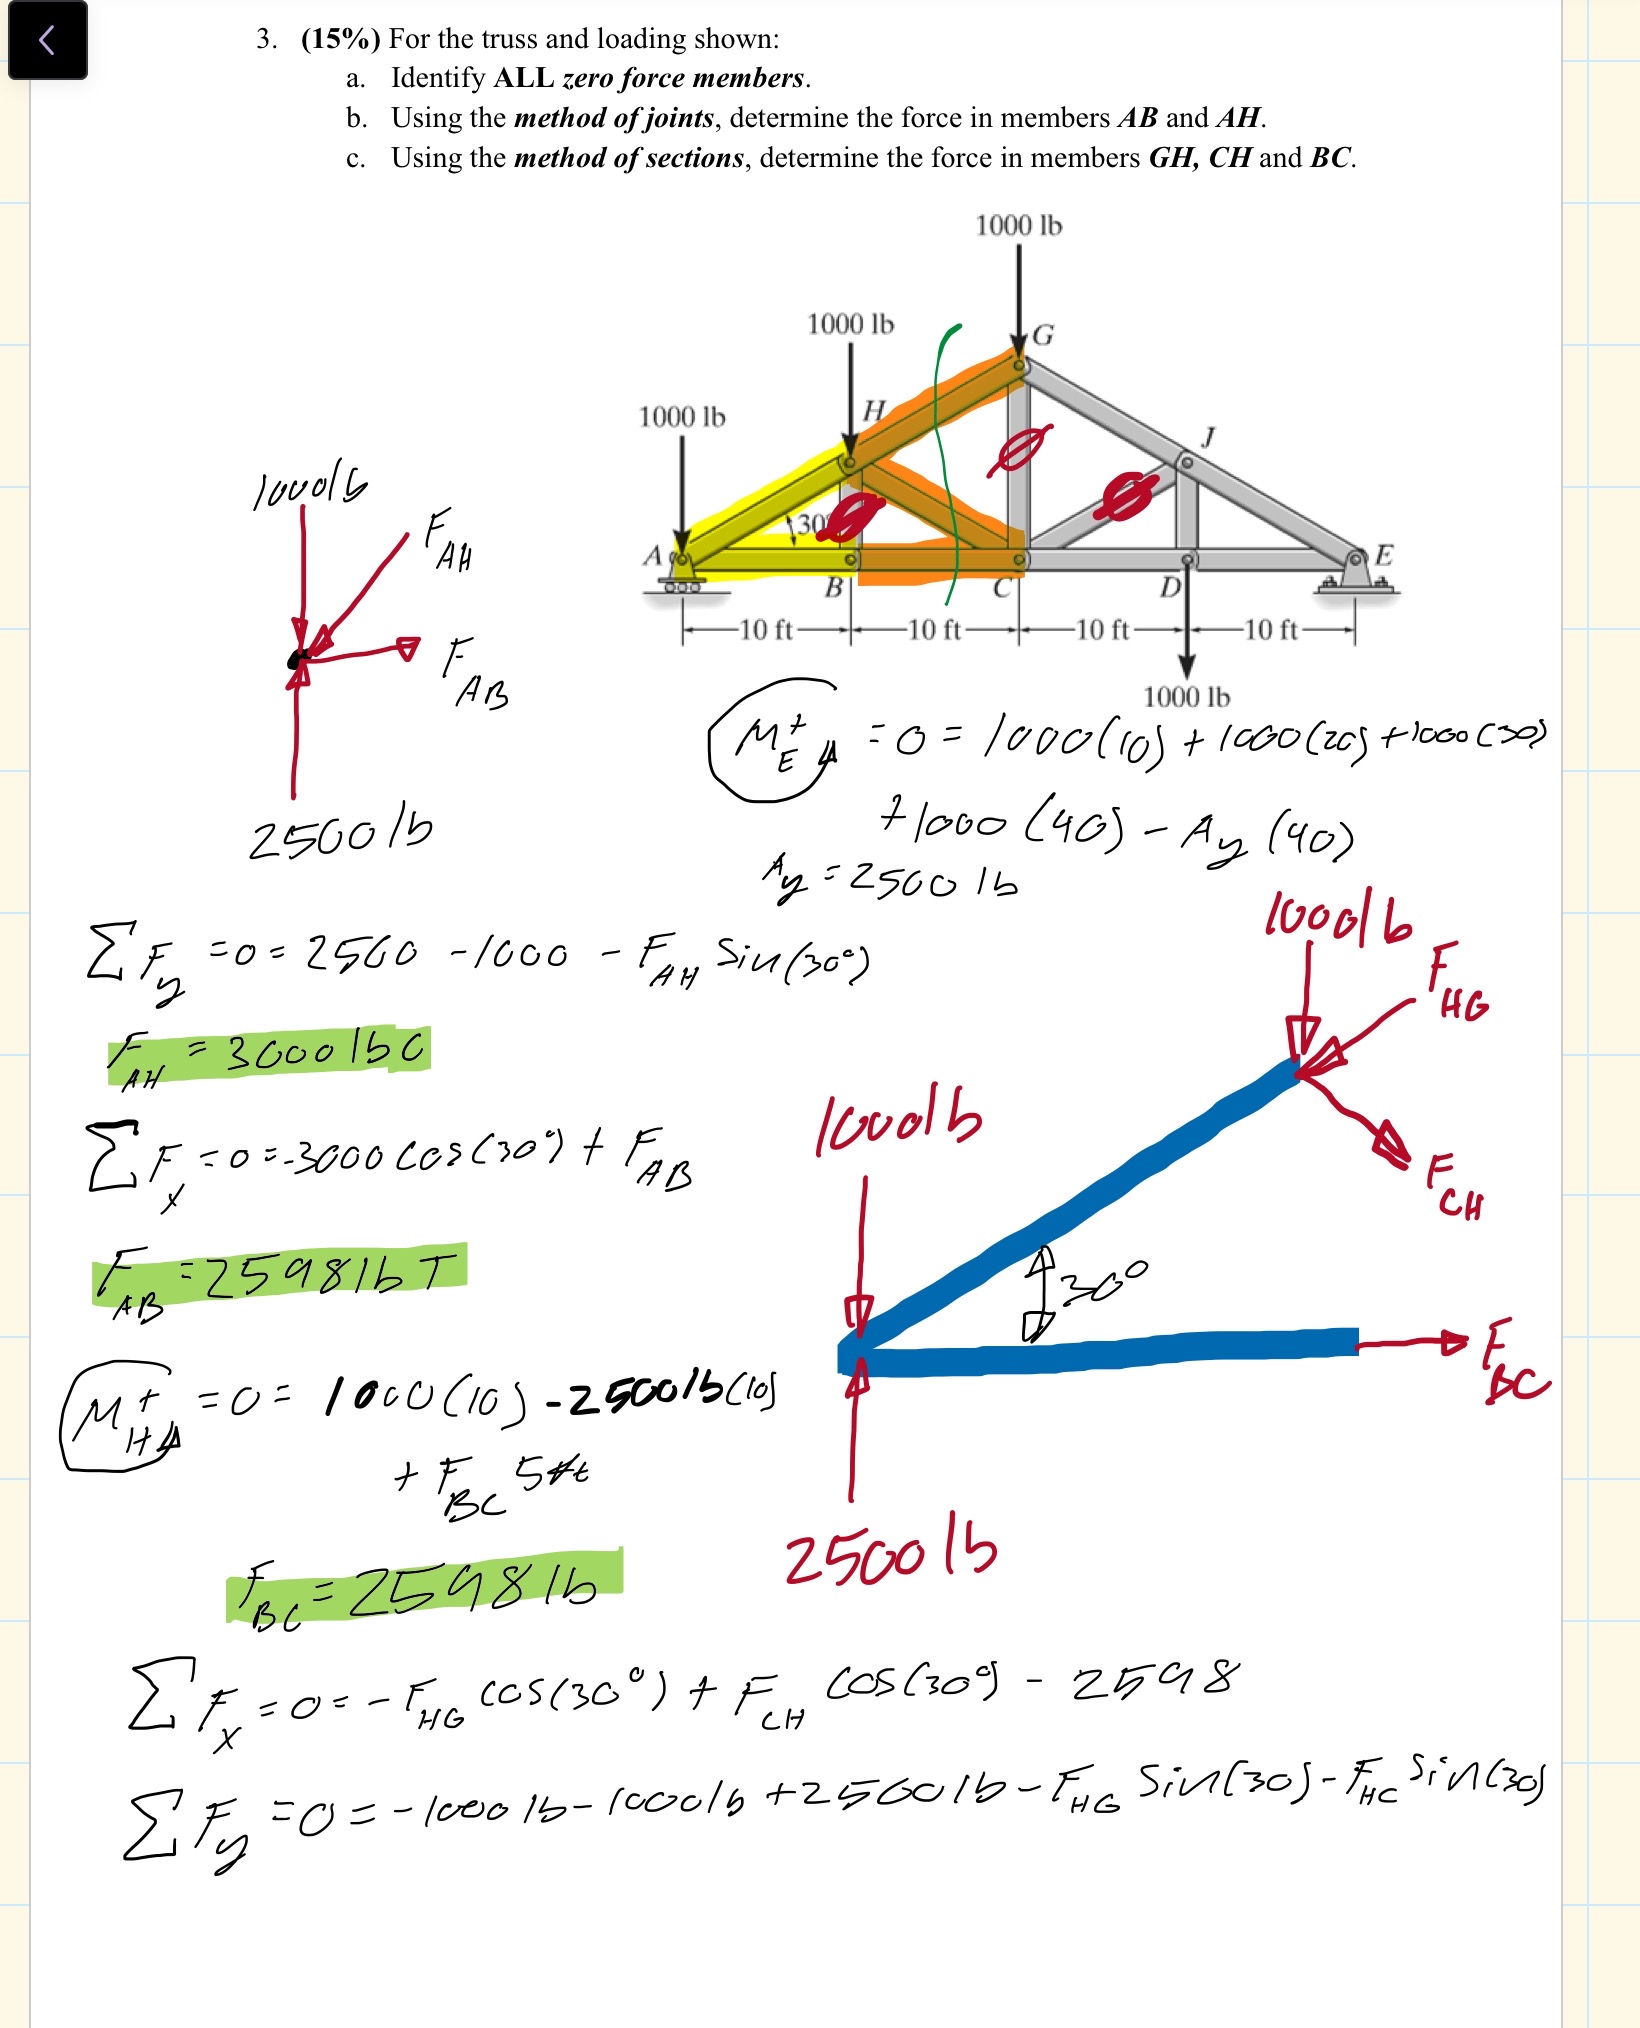 3. (15%) For the truss and loading shown:
a. Identify ALL zero force members.
b. Using the method of joints, determine the force in members AB and AH.
c. Using the method of sections, determine the force in members GH, CH and BC.
1000 lb
1000 lb
G
H
1000 lb
J
30°
A
E
B
C
D
10 ft
10 ft
10 ft
10 ft
1000 lb
1000lb
F AH
F AB
2500 lb
M E + = 0 = 1000(10) + 1000(20) + 1000(30)
+ 1000 (40) - Ay (40)
Ay = 2500 lb
ΣFy = 0 = 2500 - 1000 - F AH Sin(30°)
F AH = 3000 lb C
ΣFx = 0 = -3000 cos(30°) + F AB
F AB = 2598 lb T
M H + = 0 = 1000(10) - 2500lb(10)
+ F BC 5
F BC = 2598 lb
1000lb
F HG
F CH
1000lb
30°
F BC
2500 lb
ΣFx = 0 = - F HG cos(30°) + F CH cos(30°) - 2598
ΣFy = 0 = - 1000 lb - 1000lb + 2500 lb - F HG Sin(30) - F HC Sin(30)